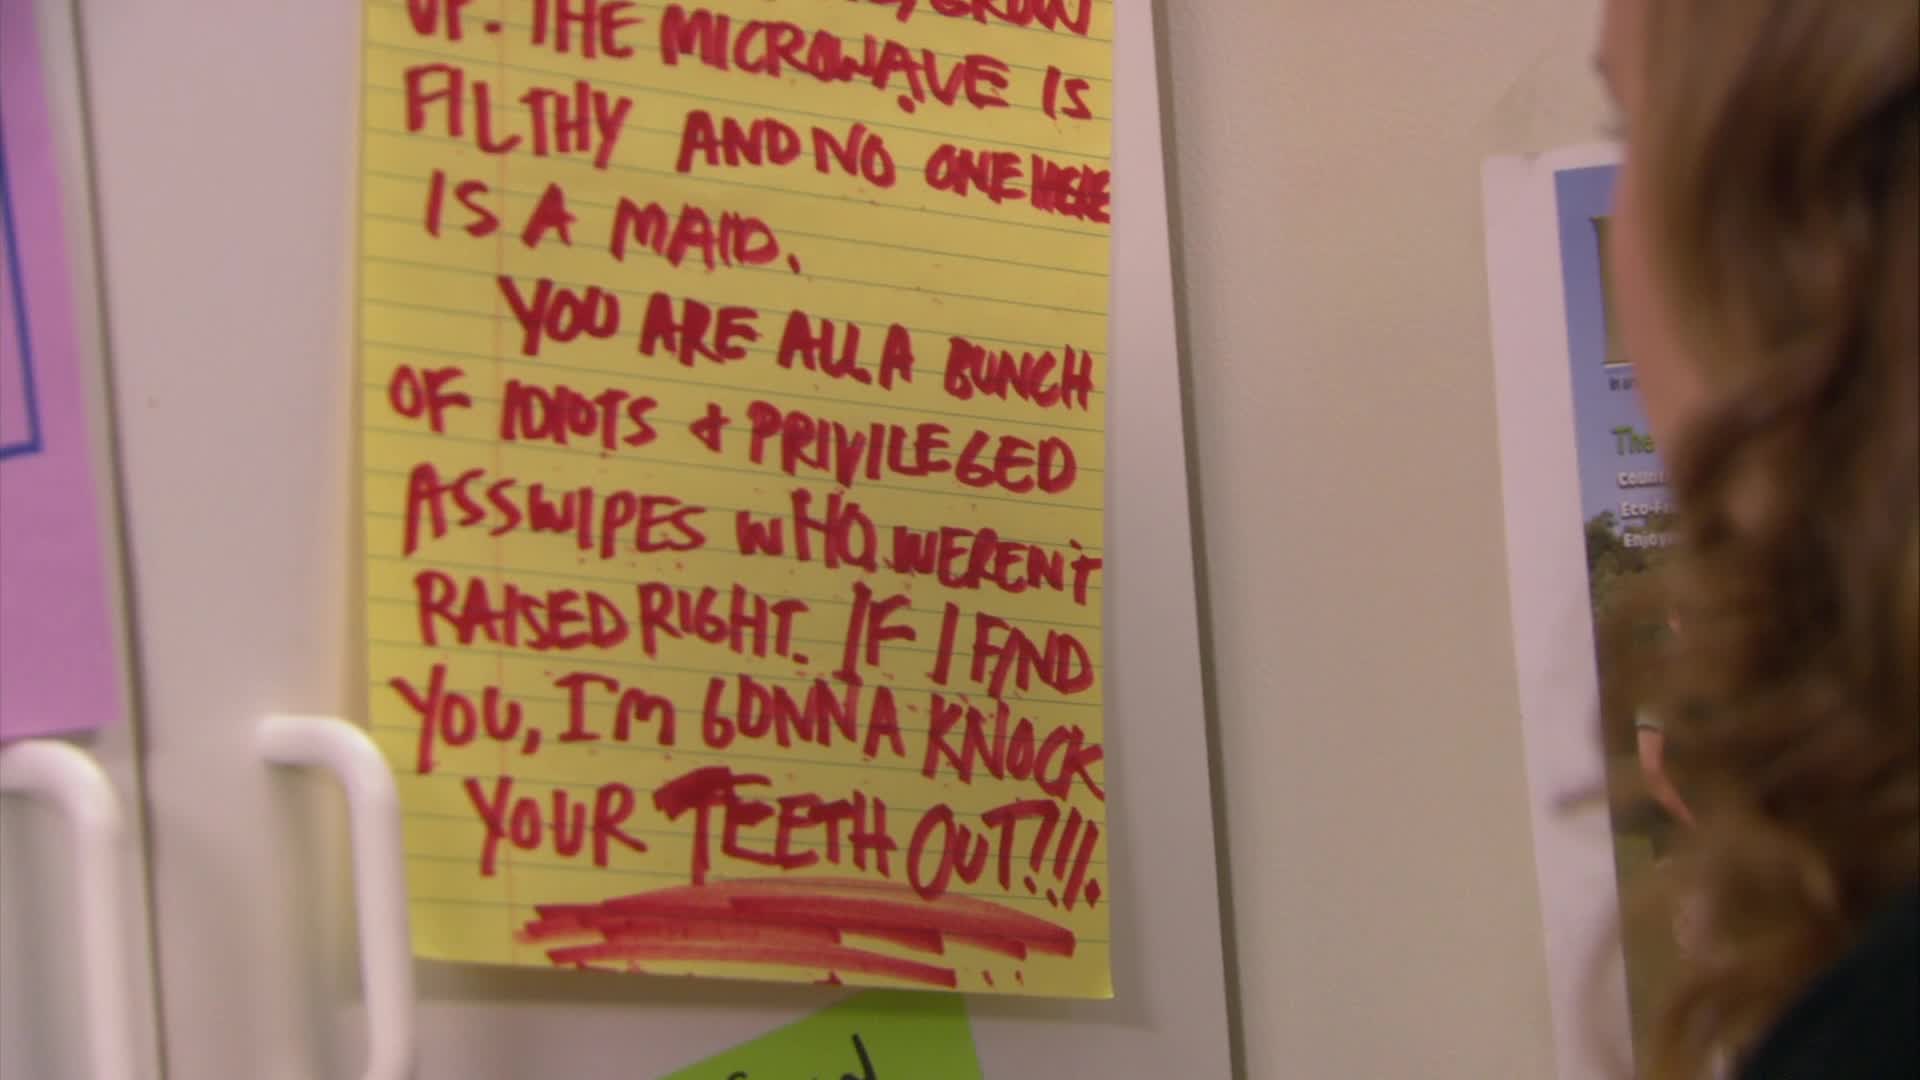 GROW
UP. THE MICROWAVE IS
FILTHY AND NO ONE HERE
IS A MAID.
YOU ARE ALL A BUNCH
OF IDIOTS & PRIVILEGED
ASSWIPES WHO WEREN'T
RAISED RIGHT. IF I FIND
YOU, I'M GONNA KNOCK
YOUR TEETH OUT?!!.
The
Enjoy